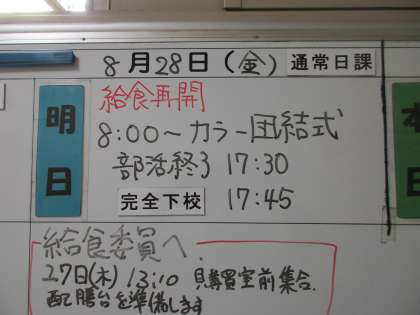 8月28日(金) 通常日課
明日
給食再開
8:00〜カラー団結式
部活終了 17:30
完全下校 17:45
給食委員へ.
27日(木) 13:10 購買室前集合.
配膳台を準備します